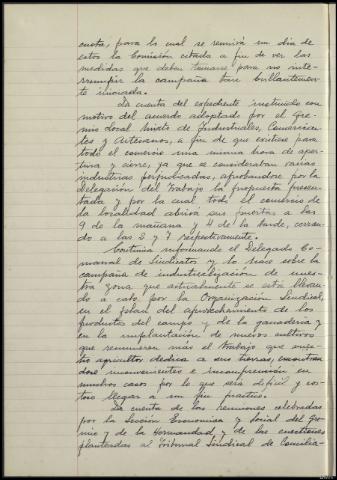 cuota, para lo cual se reunirá un día de
estos la Comisión citada a fin de ver las
medidas que deben tomarse para no inte-
rrumpir la campaña tan brillantemen-
te iniciada.
Da cuenta del expediente instruido con
motivo del acuerdo adoptado por el Gre-
mio Local Mixto de Industriales, Comercian-
tes y Artesanos, a fin de que existiese para
todo el comercio una misma hora de aper-
tura y cierre, ya que se consideraban varias
industrias perjudicadas, aprobándose por la
Delegación del Trabajo la propuesta presen-
tada y por la cual, todo el comercio de
la localidad abrirá sus puertas a las
9 de la mañana y 4 de la tarde, cerran-
do a las 2 y 7 respectivamente.
Continúa informando el Delegado Co-
marcal de Sindicatos y lo hace sobre la
campaña de industrialización de nues-
tra zona que actualmente se está llevan-
do a cabo por la Organización Sindical,
en el plan del aprovechamiento de los
productos del campo y de la ganadería y
en la implantación de nuevos cultivos
que remuneren más el trabajo que nues-
tro agricultor dedica a sus tierras, encontrán-
dose inconvenientes e incomprensión en
muchos casos por lo que será difícil y cos-
toso llegar a un fin práctico.
Da cuenta de las reuniones celebradas
por la Sección Económica y Social del Gre-
mio y de la Hermandad y de las cuestiones
planteadas al Tribunal Sindical de Concilia-